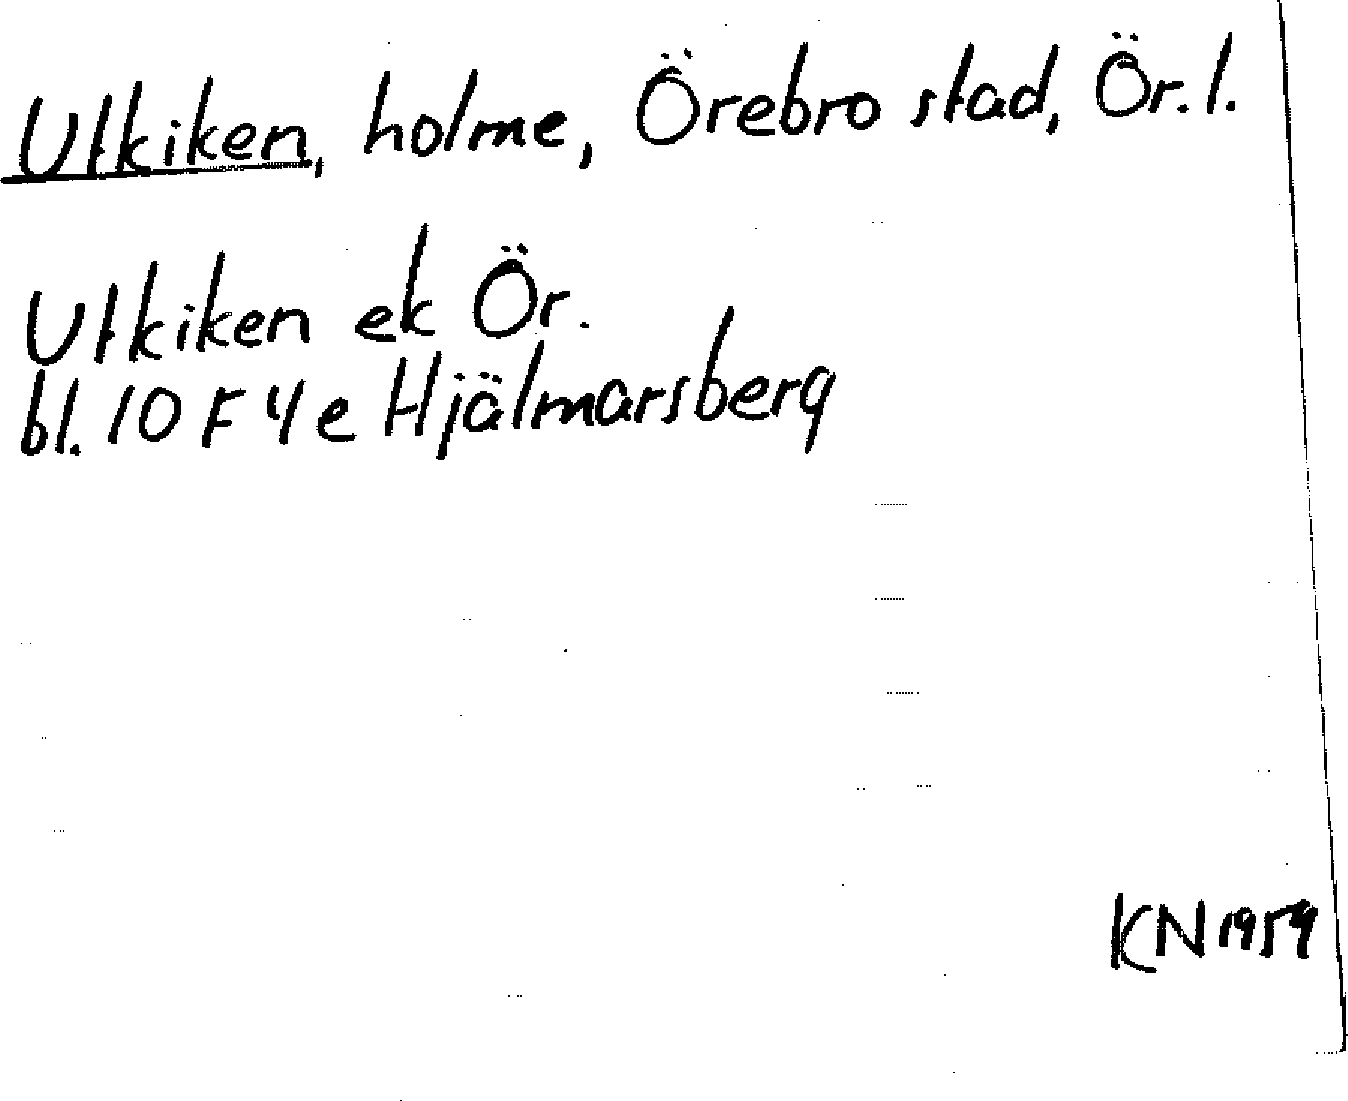 Utkiken, holme, Örebro stad, Ör. l.
Utkiken ek Ör.
bl. 10 F 4 e Hjälmarsberg
KN 1959